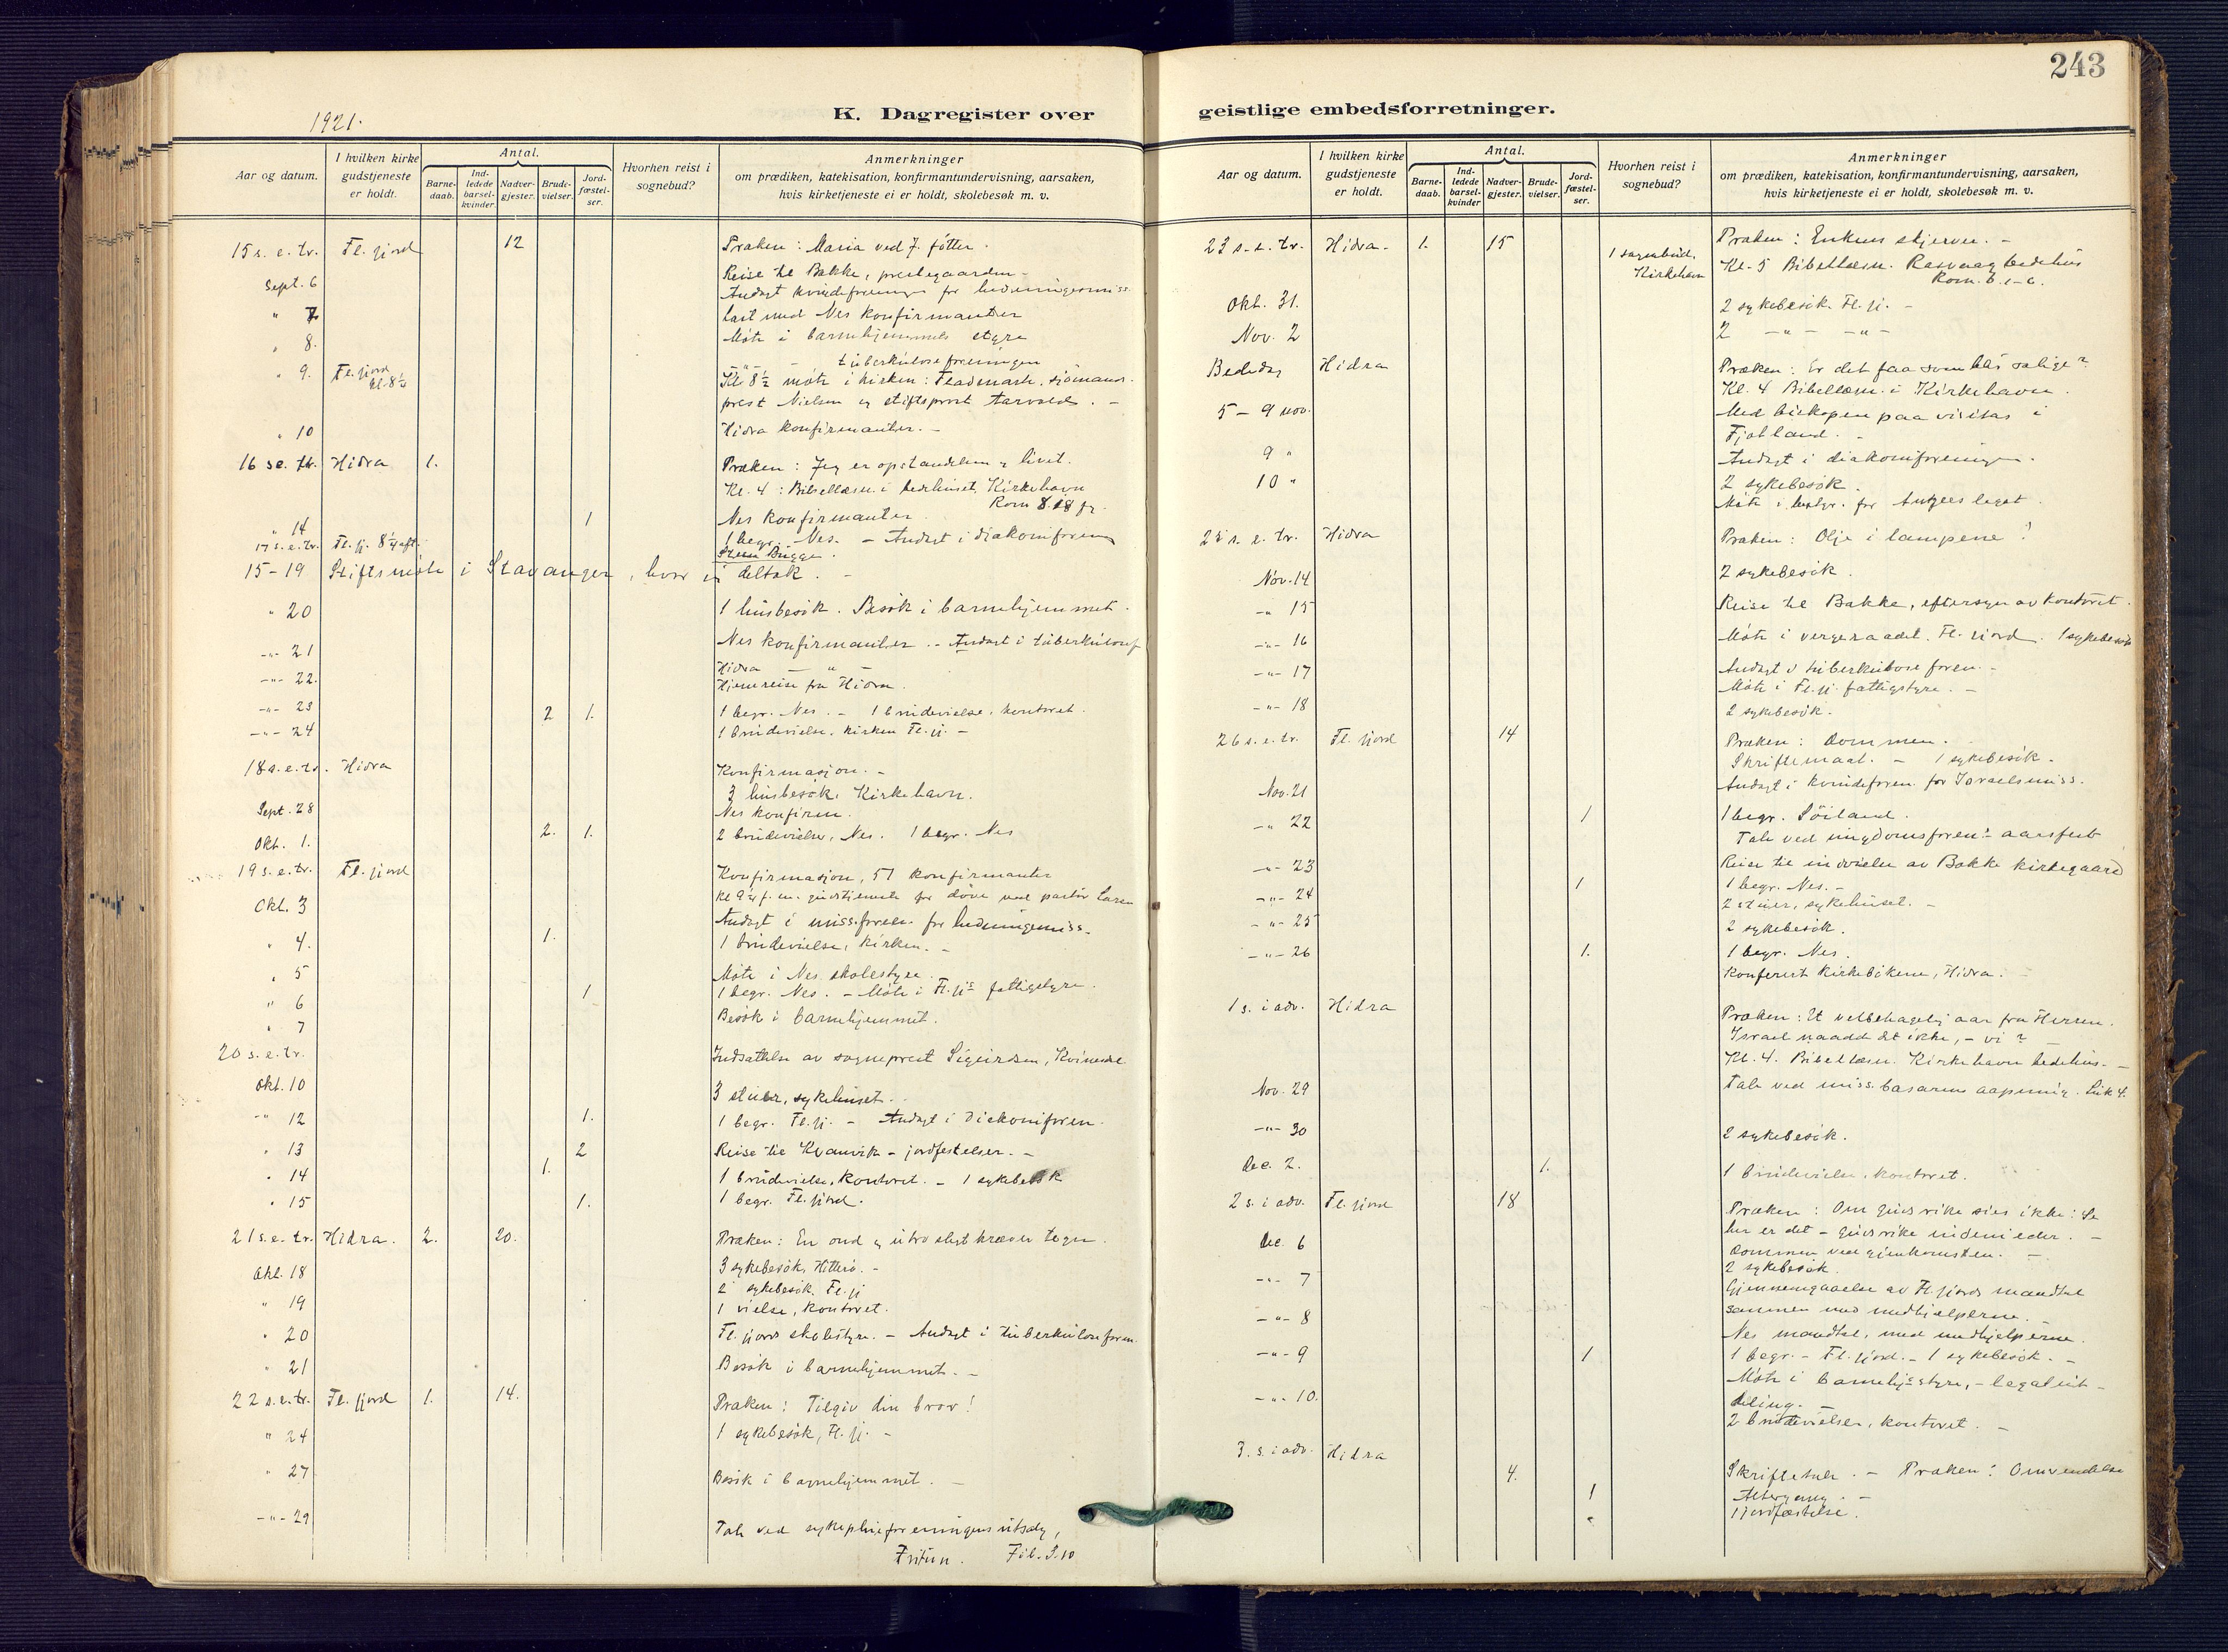 243
1921.
K. Dagregister over geistlige embedsforretninger.
Aar og datum. I hvilken kirke gudstjeneste er holdt. Antal. Barnedaab. Indledede barselkvinder. Nadvergjester. Brudevielser. Jordfæstelser. Hvorhen reist i sognebud? Anmerkninger om prædiken, katekisation, konfirmantundervisning, aarsaken, hvis kirketjeneste ei er holdt, skolebesøk m. v.
15 s. e. tr. Fl. fjord 12 Præken: Maria ved J. føtter.
Sept. 6 Reise til Bakke, prestegaarden -
Andagt kvindeforeningen for hedningemiss.
" 7 last med Nes konfirmanter
" 8. Møte i barnehjemmets styre
-"- - tuberkuloseforeningen
" 9. Fl. fjord kl. 8½ Kl 8½ møte i kirken: sjømands-
prest Nielsen og stiftsprost Tarvald. -
" 10 Hidra konfirmanter. -
16 s e. tr. Hidra 1. Præken: Jeg er opstandelsen og livet.
Kl. 4: Bibellæsn. i bedehuset, Kirkehavn
Rom 8.18 fr.
" 14 1 Nes konfirmanter.
17 s. e. tr. Fl. fj. 8¼ aft. 1 begr. Nes. - Andagt i diakoniforen
15-19 Stiftsmøte i Stavanger, hvor jeg deltok. -
" 20 1 husbesøk. Besøk i barnehjemmet.
-"- 21 Nes konfirmanter. - Andagt i tuberkulosef
-"- 22. Hidra - " -
Hjemreise fra Hidra.
-"- 23 2 1. 1 begr. Nes. - 1 brudevielse, kontoret.
-"- 24 1 brudevielse, kirken Fl. fj. -
18 s. e. tr. Hidra Konfirmasjon. -
3 husbesøk, Kirkehavn.
Sept. 28 Nes konfirm.
Okt. 1. 2. 1. 2 brudevielse, Nes. 1 begr. Nes
19 s. e. tr. Fl. fjord Konfirmasjon, 51 konfirmanter
Kl 9¼ f. m. gudstjeneste for døve ved pastor
Okt. 3 Andagt i miss.foren. for hedningemiss.
" 4. 1. 1 brudevielse, kirken. -
" 5 Møte i Nes skolestyre.
" 6 1 1 begr. Nes. - Møte i Fl. fj.s fattigstyre.
" 7 Besøk i barnehjemmet.
20 s. e. tr. Indsættelse av sogneprest Sigurdsen, Kvinesdal
Okt. 10 3 stuer, sykehuset. -
-"- 12 1. 1 begr. Fl. fj. - Andagt i diakoniforen.
" 13 2 Reise til Kvanvik - jordfestelser. -
" 14 1. 1 brudevielse, kontoret. - 1 sykebesøk
" 15 1. 1 begr. Fl. fjord.
21 s. e. tr. Hidra. 2. 20. Præken: En ond og utro slegt kræver tegn.
Okt. 18 3 sykebesøk, Hitterø. -
2 sykebesøk, Fl. fj
" 19 1 vielse, kontoret.
" 20 Fl. fjords skolestyre. - Andagt i tuberkuloseforen.
" 21 Besøk i barnehjemmet. -
22 s. e. tr. Fl. fjord 1. 14. Præken: Tilgiv din bror!
" 24 1 sykebesøk, Fl. fj. -
" 27 Besøk i barnehjemmet. -
-"- 29 Tale ved sykepleieforeningens utsalg,
Fritun. Fil. 3.10
23 s. e. tr. Hidra - 1. 15 1 sognebud, Kirkehavn Præken: Enkens skjerver. -
Kl. 5 Bibellæsn. Rasvaag bedehus
Rom. 6. 1-6.
Okt. 31. 2 sykebesøk. Fl. fj. -
Nov. 2 2 -"- -"-
Bededag Hidra Præken: Er det faa som blir salige?
Kl. 4 Bibellæsn. i Kirkehavn.
5 - 9 nov. Med biskopen paa visitas i
Fjotland. -
9 " Andagt i diakoniforeningen.
10 " 2 sykebesøk.
Møte i bestyr. for legat.
25 s. e. tr. Hidra Præken: Olje i lampene!
Nov. 14 2 sykebesøk.
-"- 15 Reise til Bakke, eftersyn av kontoret.
-"- 16 Møte i vergeraadet, Fl. fjord. 1 sykebesøk
-"- 17 Andagt i tuberkulose foren. -
Møte i Fl. fj. fattigstyre. -
-"- 18 2 sykebesøk.
26 s. e. tr. Fl. fjord 14 Præken: Dommen.
Skriftemaal. - 1 sykebesøk.
Nov. 21 Andagt i kvindeforen. for Israelsmiss.
-"- 22 1 1 begr. Söiland.
Tale ved ungdomsforen.s aarsfest
-"- 23 Reise til indvielse av Bakke kirkegaard
-"- 24 1 1 begr. Nes. -
2 stuer, sykehuset. -
-"- 25 2 sykebesøk.
-"- 26 1. 1 begr. Nes.
Konferert kirkebøkene, Hidra. -
1 s. i adv. Hidra Præken: Et velbehagelig aar fra Herren.
Israel naadd det ikke, - vi?
Kl. 4. Bibellæsn. Kirkehavn bedehus. -
Nov. 29 Tale ved miss.basarens aapning. Luk 4.
-"- 30 2 sykebesøk.
Dec. 2. 1. 1 brudevielse, kontoret.
2 s. i adv. Fl. fjord 18 Præken: Om Guds rike sies ikke: Se
her er det - Guds rike indeni eder. -
Dommen ved gjenkomsten. -
Dec. 6 2 sykebesøk.
-"- 7 Gjennemgaaelse av Fl. fjords mandtal
sammen med medhjelperne. -
-"- 8 Nes mandtal, med medhjelperne.
-"- 9 1 1 begr. - Fl. fjord. - 1 sykebesøk. -
Møte i barnehj.s styre, - legatut-
-"- 10. deling. -
2 brudevielser, kontoret. -
3. s. i adv. Hidra 4. Skriftetale. - Præken: Omvendelse
1 Altergang. -
1 jordfæstelse.